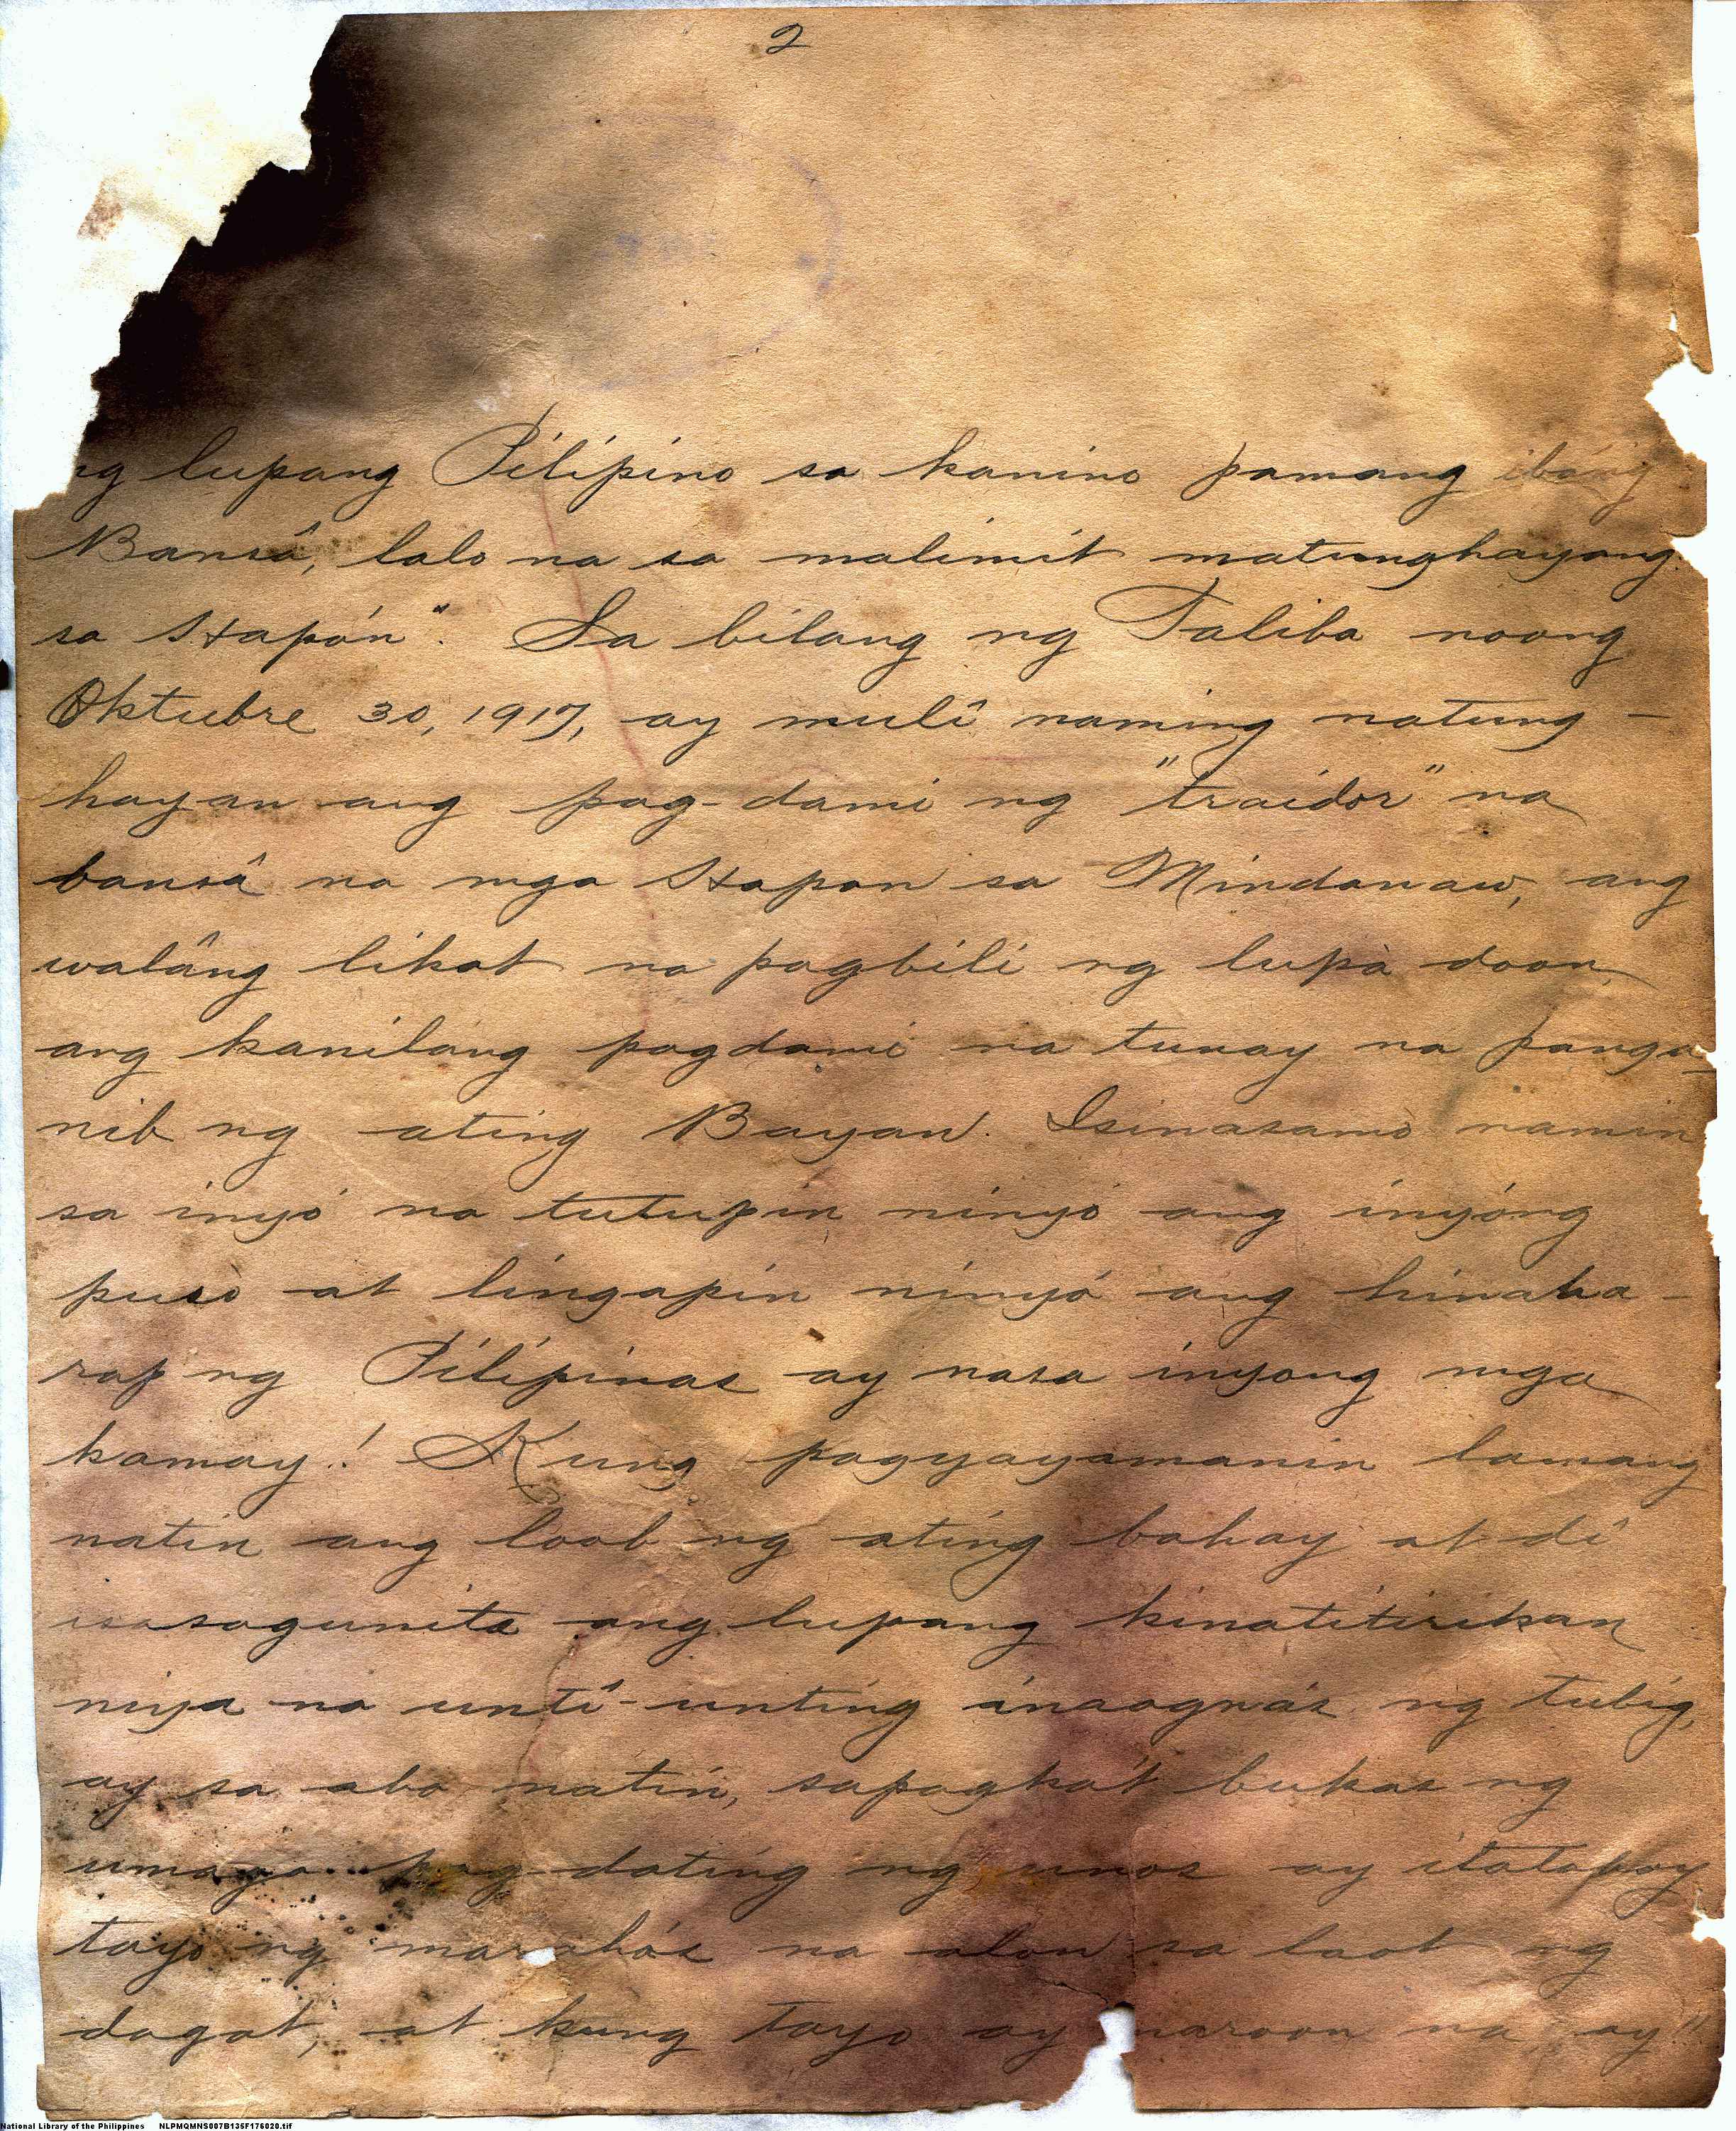 2
ng lupang Pilipino sa kanino pamang ibáng
Bansâ, lalo na sa malimit matunghayang
sa Hapón". Sa bilang ng Taliba noong
Oktubre 30, 1917, ay mulî naming natung-
hayan ang pag-dami ng "traidor" na
bansâ na mga Hapon sa Mindanaw, ang
walâng likat na pagbili ng lupà doon,
ang kanilang pagdami na tunay na panga-
nib ng ating Bayan. Isinasamo namin
sa inyó na tutupin ninyó ang inyóng
pusò at lingapin ninyó ang hinaha-
rap ng Pilipinas ay nasa inyong mga
kamay! Kung pagyayamanin lamang
natin ang loob ng ating bahay at dî
isasagunita ang lupang kinatitirikan
niya na untî-unting ináagnás ng tubig,
ay sa aba natin, sapagká't bukas ng
umaga pag-dating ng unos ay itatapoy
tayo ng marahás na alon sa laot ng
dagat, at kung tayo ay naroon na, ay"
National Library of the Philippines NLPMQMNS007B135F176020.tif